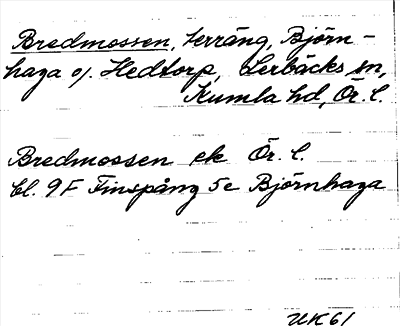 Bredmossen, terräng, Björn-
haga o/. Hedtorp, Lerbäcks sn,
Kumla hd, Ör. l.
Bredmossen ek Ör. l.
bl. 9F Finspång 5e Björnhaga
UK61